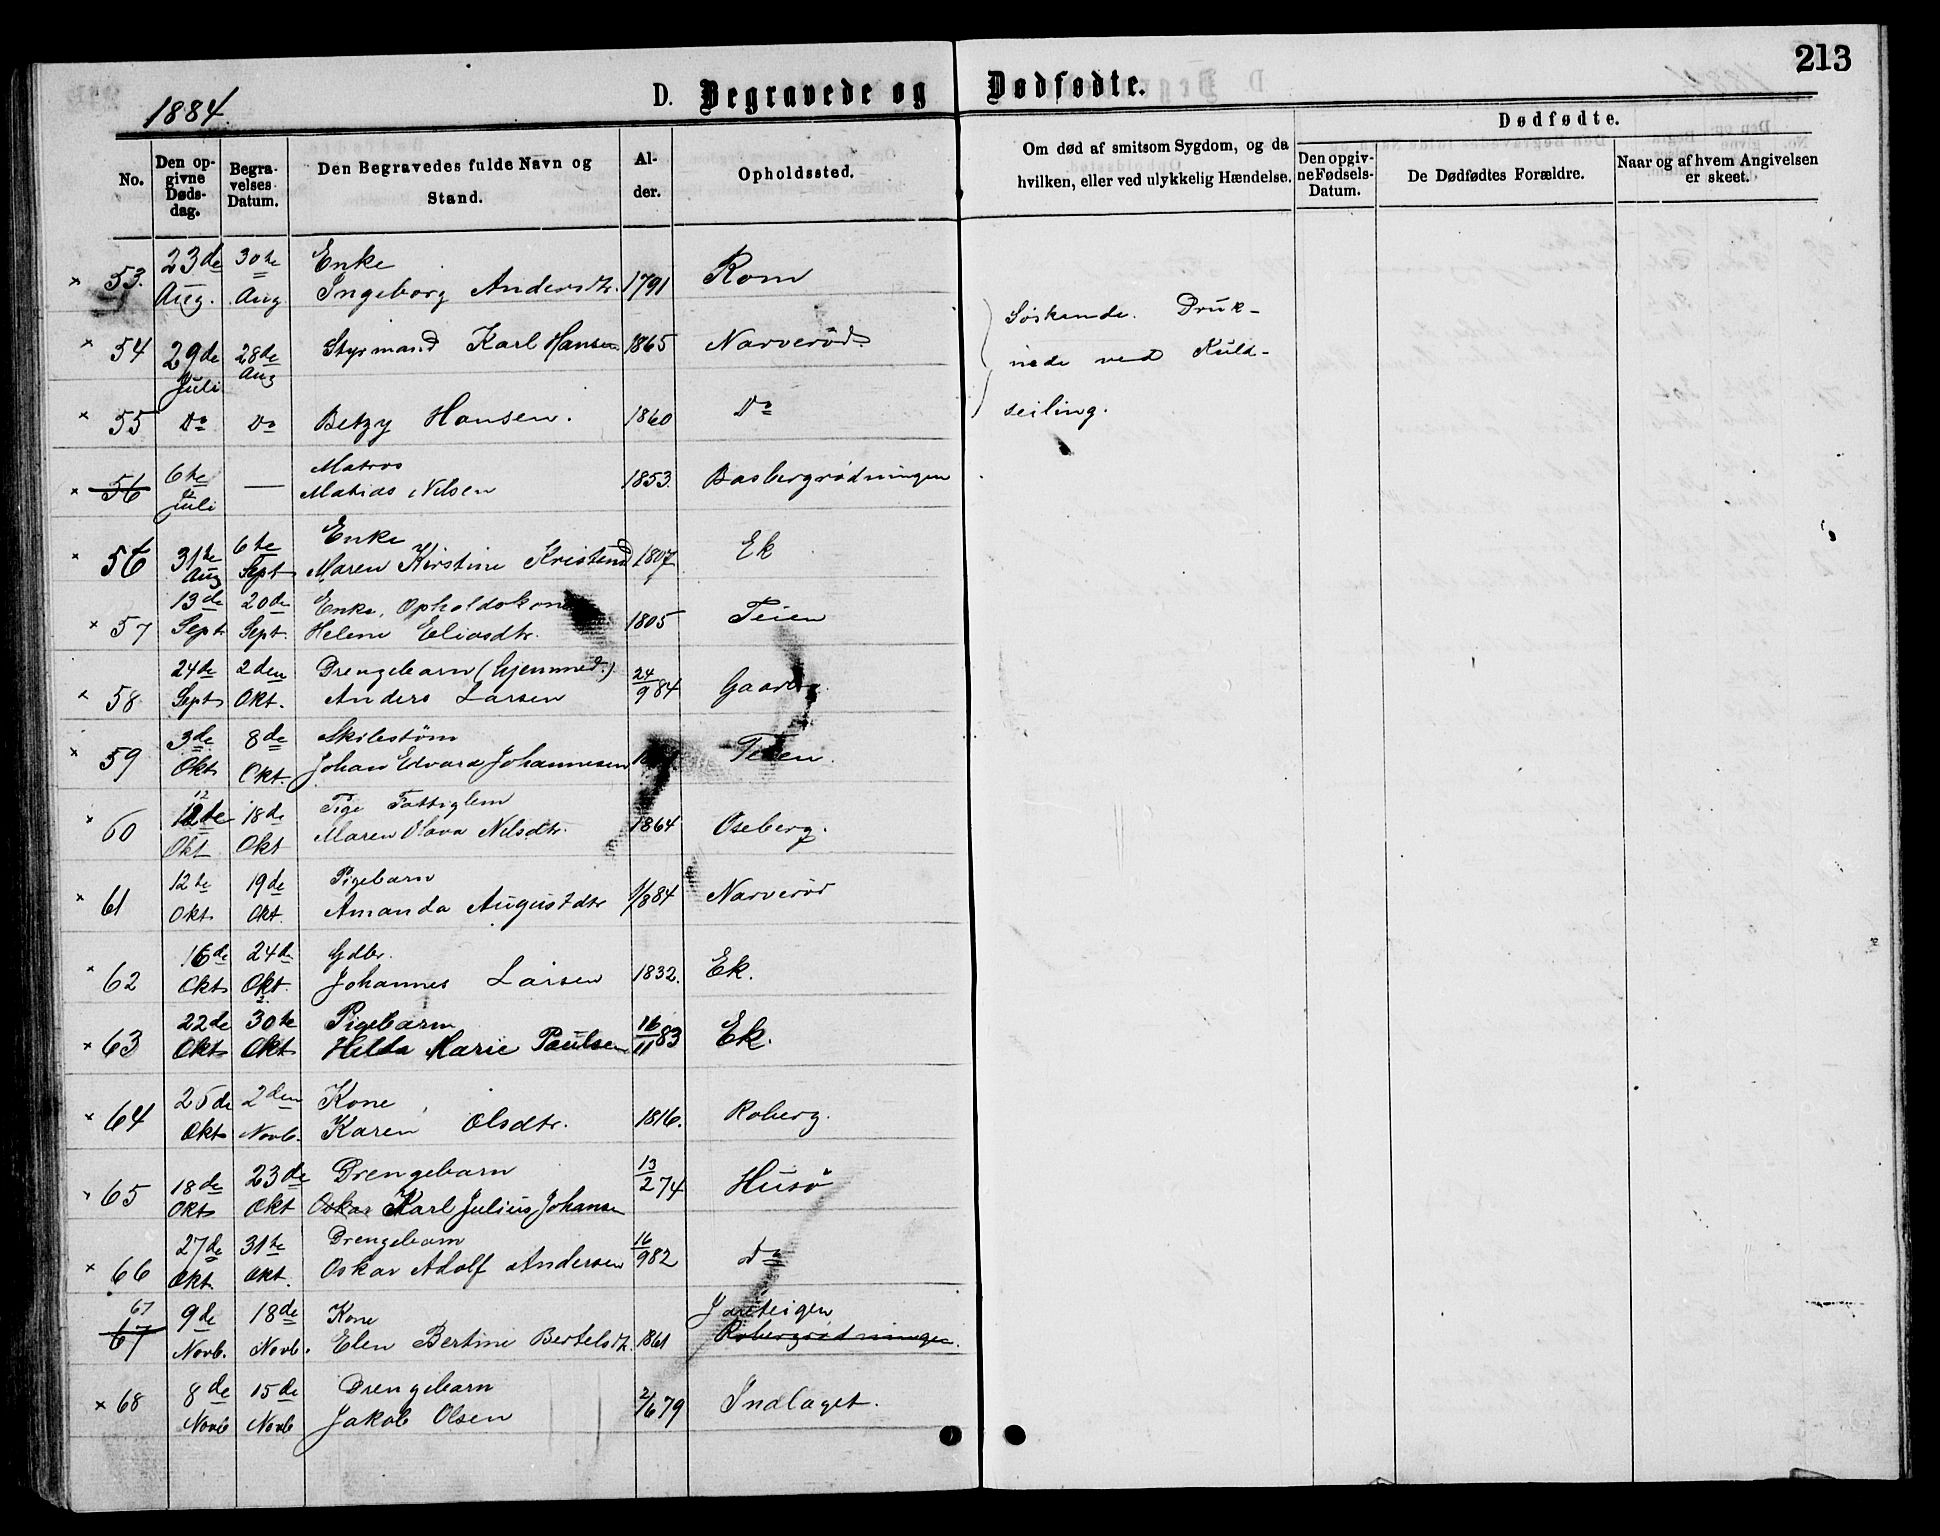 213
1884.
D. Begravede og Dødfødte.
No.
Den opgivne Dødsdag.
Begravelses Datum.
Den Begravedes fulde Navn og Stand.
Alder.
Opholdssted.
Om død af smitsom Sygdom, og da hvilken, eller ved ulykkelig Hændelse.
Dødfødte.
Den opgivne Fødsels-Datum.
De Dødfødtes Forældre.
Naar og af hvem Angivelsen er skeet.
× 53. 23de Aug. 30te Aug Enke Ingeborg Andersdtr. 1791 Rom
× 54 29de Juli 28de Aug Styrmand Karl Hansen 1865 Narverød
Søskende. Druk-
nede ved Kuld-
seiling.
× 55 Do Do Betzy Hansen. 1860 Do
× 56 6te Juli — Matros Matias Nilsen 1853. Basbergrødningen
× 56 31te Aug 6te Sept Enke Maren Kirstine 1807 Ek
× 57 13de Sept 20de Sept. Enke, Opholdskone Helene Eliasdtr. 1805 Teien
× 58 24de Sept 2den Okt. Drengebarn (hjemmed.) Anders Larsen 24/9 84
× 59 3de Okt 8de Okt. Johan Edvard Johannesen Teien.
× 60 12 12de Okt 18de Okt Pige Fattiglem Maren Olava Nilsdtr. 1864 Oseberg.
× 61 12te Okt 19de Okt. Pigebarn Amanda Augustdtr 1/8 84 Narverød
× 62 16de Okt 24de Okt. Gdbr. Johannes Larsen 1832. Ek.
× 63 22de Okt 30te Okt Pigebarn Hilda Marie Paulsen 16/11 83 Ek.
× 64 25de Okt 2den Novb. Kone Karen Olsdtr. 1816. Roberg.
× 65 18de Okt 23de Okt Drengebarn Oskar Karl Julius Johansen 13/2 74 Husø
× 66 27de Okt. 31te Okt. Drengebarn Oskar Adolf Andersen 16/9 82 Do
67 67 9de Novb. 18de Novb. Kone Elen Bertine Bertelsdtr. 1861 Jarteigen Robergrødningen.
× 68 8de Novb 15de Novb Drengebarn Jakob Olsen 2/6 79 Indlaget.